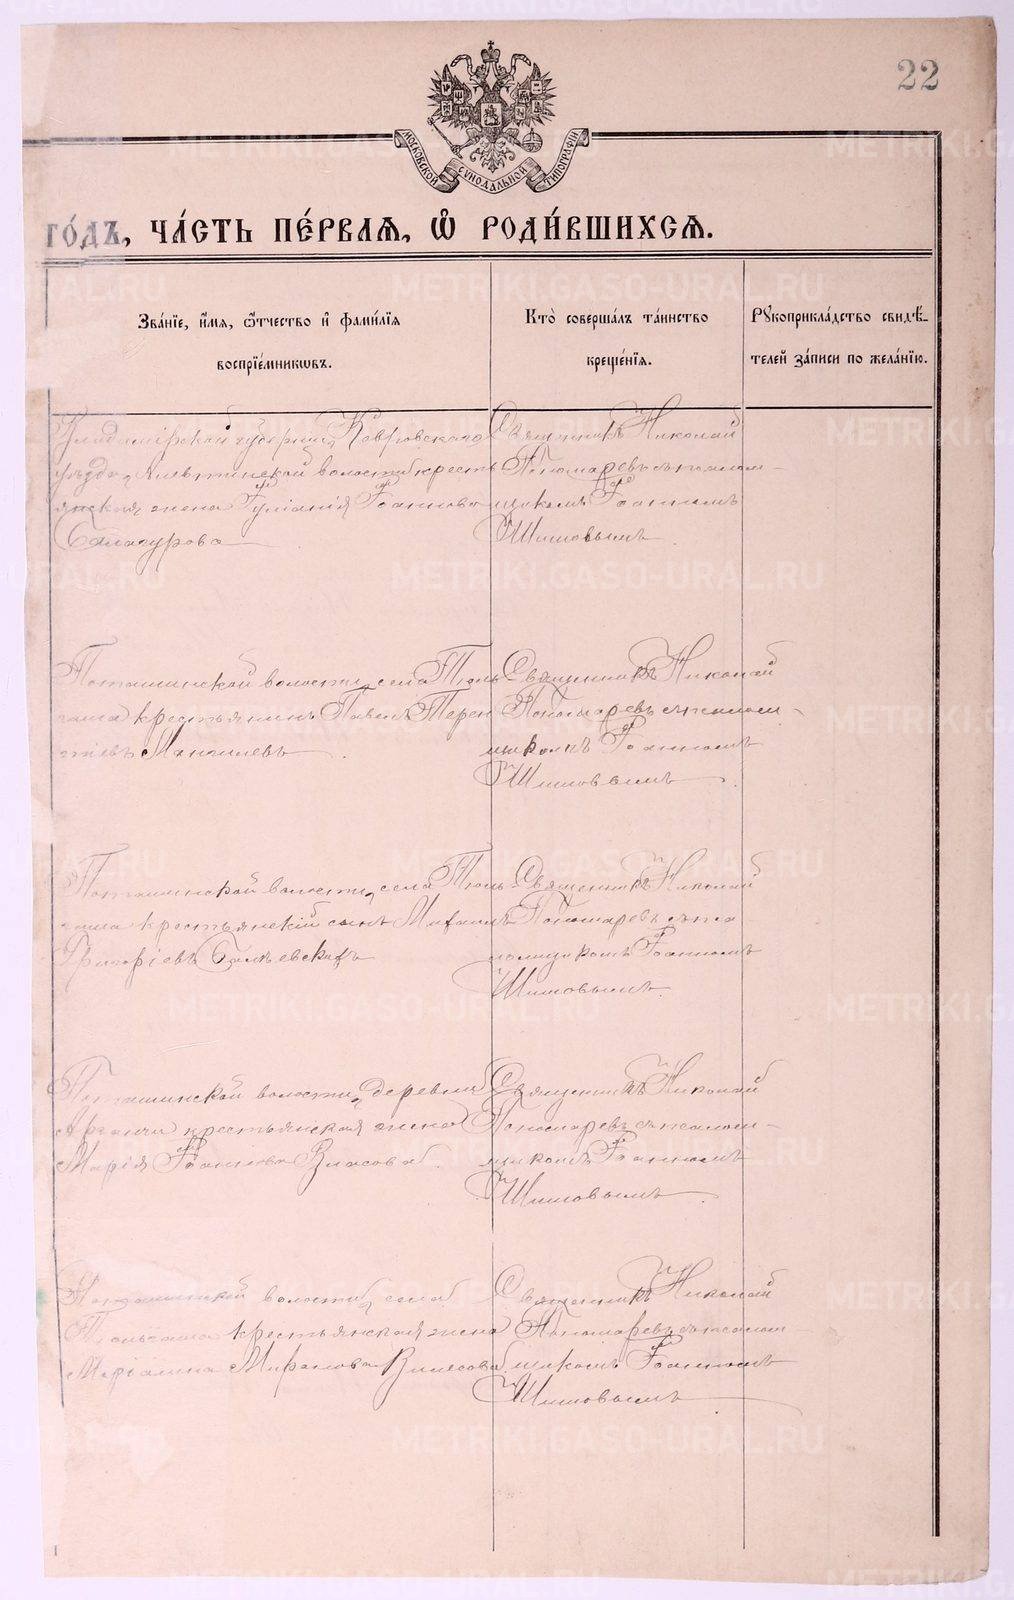 22
МОСКОВСКОЙ СѴНОДАЛЬНОЙ ТИПОГРАФІИ
ГО́ДЪ, ЧА́СТЬ ПЕ́РВАЯ, Ѽ РОДИ́ВШИХСЯ.
Зва́нїе, и҆́мя, ѻ҆́тчество и҆ фами́лїя
воспрїе́мникѡвъ.
Кто̀ соверша́лъ та́инство
креще́нїя.
Рꙋкоприкла́дство свидѣ́-
телей за́писи по жела́нїю.
Владимірской губерніи, Ковровскаго
уѣзда, волости кресть
янская жена Іуліанія Іоаннова
Священникъ Николай
Пономаревъ съ псалом-
щикомъ Іоанномъ
Шишовымъ.
Поташинской волости, села Тюль
гаша крестьянинъ Павелъ Терен
тіевъ
Священникъ Николай
Пономаревъ съ псалом-
щикомъ Іоанномъ
Шишовымъ.
Поташинской волости, села Тюль
гаша крестьянскій сынъ Михаилъ
Григоріевъ
Священникъ Николай
Пономаревъ съ пса
ломщикомъ Іоанномъ
Шишовымъ.
Поташинской волости, деревни
крестьянская жена
Марія Іоаннова Власова
Священникъ Николай
Пономаревъ съ псалом-
щикомъ Іоанномъ
Шишовымъ.
Поташинской волости, села
Тюльгаша крестьянская жена
Священникъ Николай
Пономаревъ съ псалом-
щикомъ Іоанномъ
Шишовымъ.
METRIKI.GASO-URAL.RU